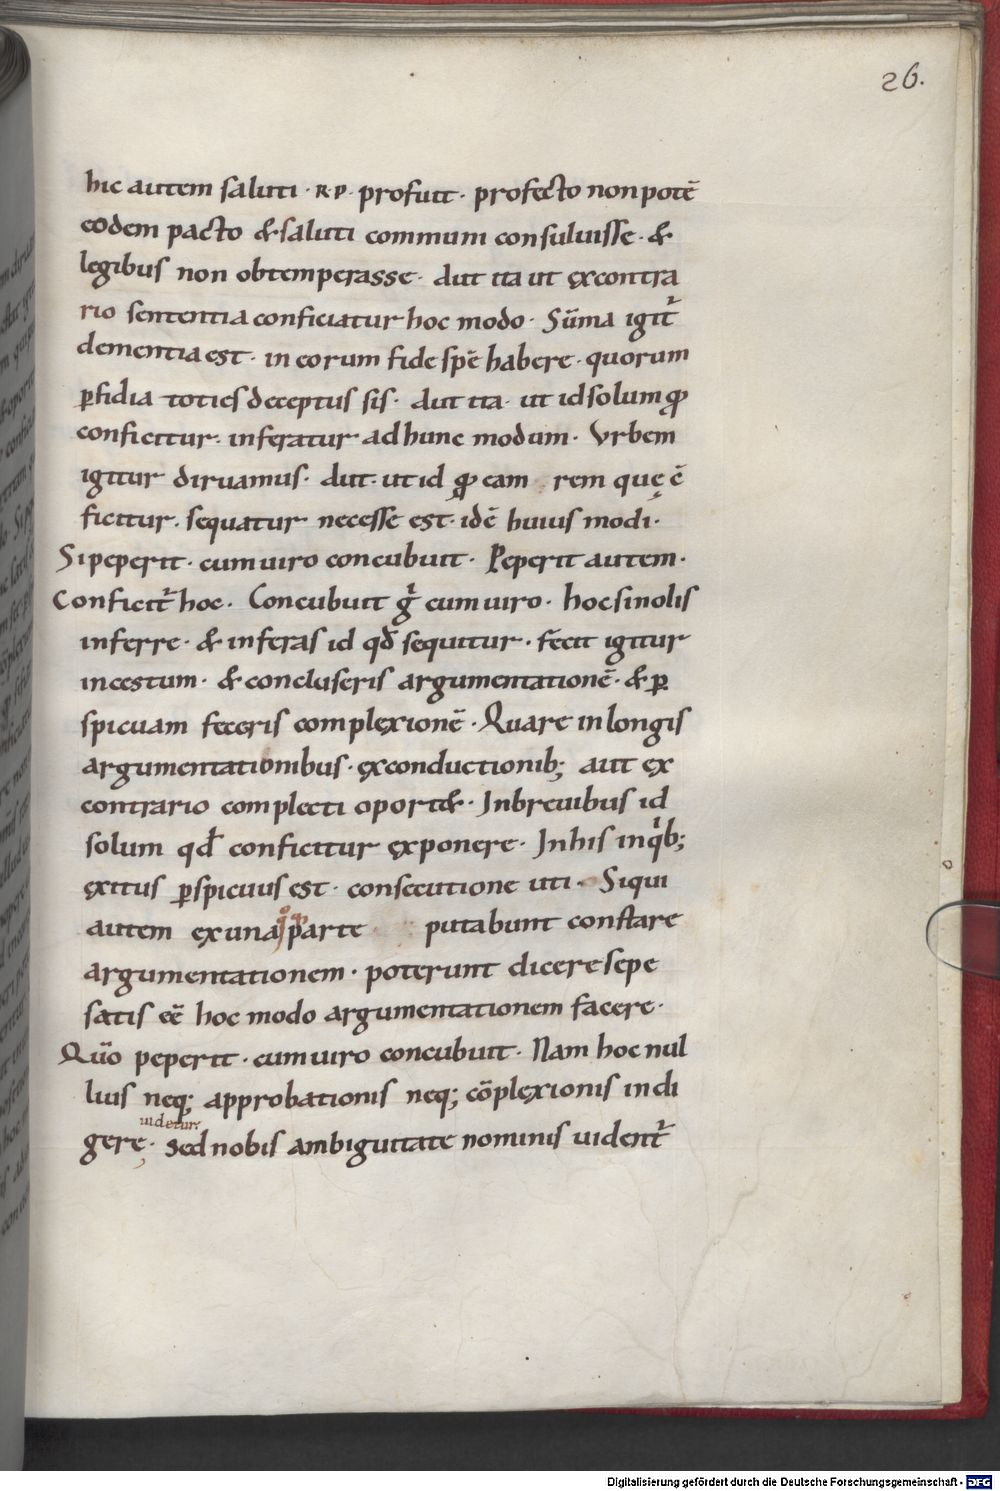 26.
hic autem saluti · R·P· profuit · profecto non potē
eodem pacto & saluti communi consuluisse · &
legibus non obtemperasse · aut ita ut ęx contra
rio sententia conficiatur hoc modo · Sūma igit̄
dementia est · in eorum fide spē habere · quorum
ꝑfidia toties deceptus sis · aut ita · ut id solum ꝙ
conficitur · inferatur ad hunc modum · Vrbem
igitur diruamus · aut · ut id ꝙ eam rem quę c̄
ficitur · sequatur necesse est · idē huius modi ·
Si peperit · cum uiro concubuit · Peperit autem ·
Conficit̄ hoc · Concubuit gͥ cum uiro · hoc si nolis
inferre · & inferas id qđ sequitur · fecit igitur
incestum · & concluseris argumentationē · & ꝑ
spicuam feceris complęxionē · Quare in longis
argumentationibus · ęx conductionib; aut ęx
contrario complecti oport& · In breuibus id
solum qđ conficitur ęxponere · In his in qͥb;
ęxitus ꝑspicuus est · consecutione uti · Si qui
autem ex una parte putabunt constare
argumentationem · poterunt dicere sepe
satis eē hoc modo argumentationem facere ·
Quō peperit · cum uiro concubuit · Nam hoc nul
lius neq; approbationis neq; cōplęxionis indi
uidetur·
gere · Sed nobis ambiguitate nominis uident̄
Digitalisierung gefördert durch die Deutsche Forschungsgemeinschaft - DFG